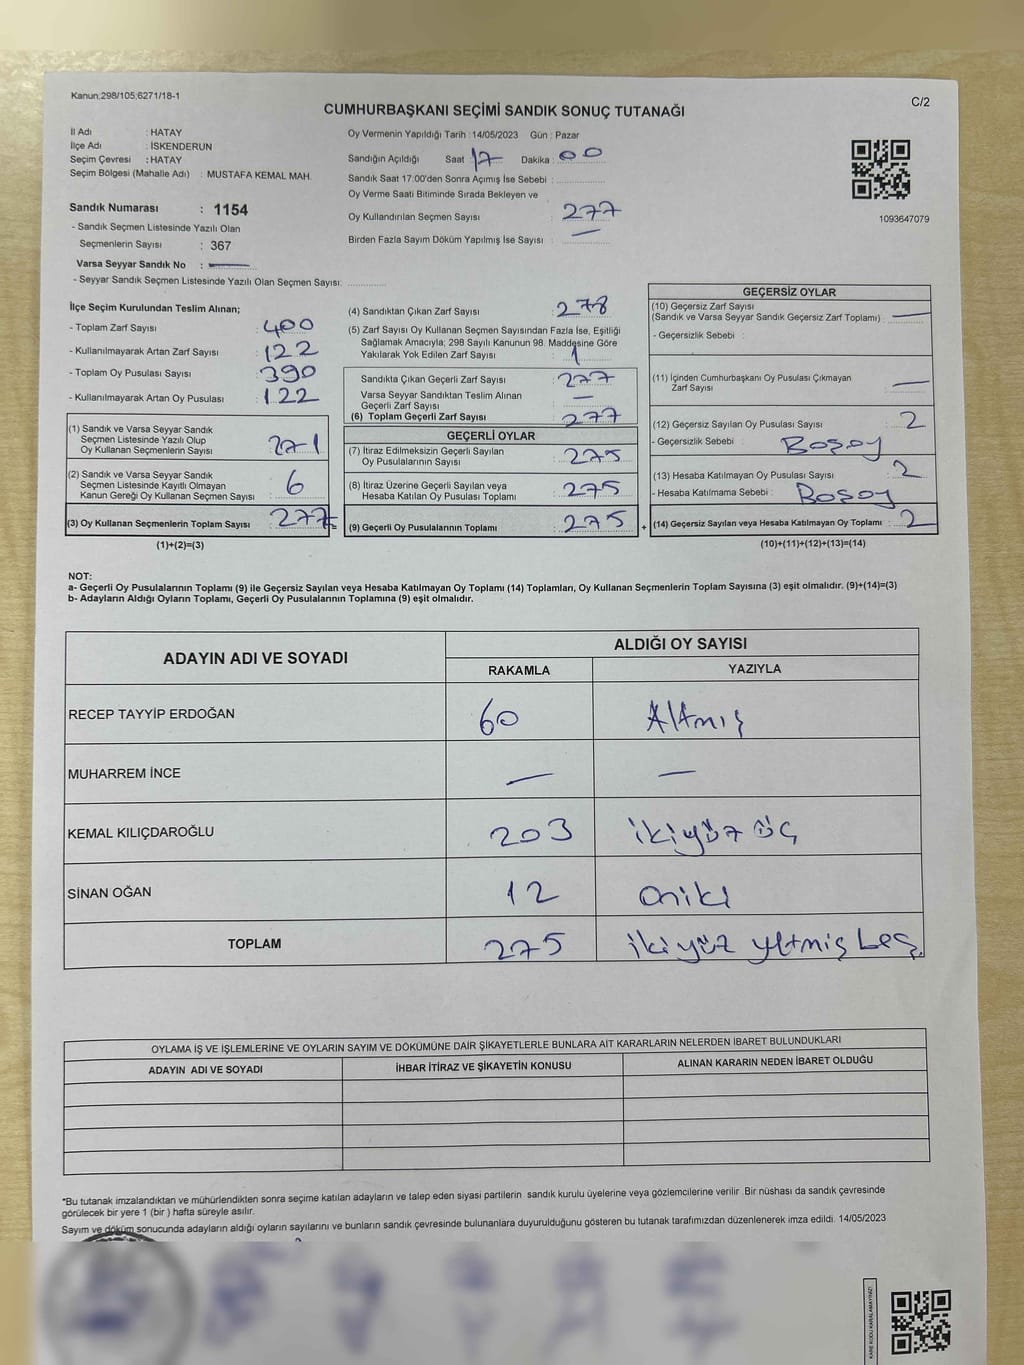 Kanun;298/105;6271/18-1
C/2
CUMHURBAŞKANI SEÇİMİ SANDIK SONUÇ TUTANAĞI
İl Adı : HATAY
İlçe Adı : İSKENDERUN
Seçim Çevresi : HATAY
Seçim Bölgesi (Mahalle Adı) : MUSTAFA KEMAL MAH.
Sandık Numarası : 1154
- Sandık Seçmen Listesinde Yazılı Olan
Seçmenlerin Sayısı : 367
Varsa Seyyar Sandık No : —
- Seyyar Sandık Seçmen Listesinde Yazılı Olan Seçmen Sayısı:
Oy Vermenin Yapıldığı Tarih : 14/05/2023 Gün : Pazar
Sandığın Açıldığı Saat : 17 Dakika : 00
Sandık Saat 17:00'den Sonra Açımış İse Sebebi :
Oy Verme Saati Bitiminde Sırada Bekleyen ve
Oy Kullandırılan Seçmen Sayısı : 277
Birden Fazla Sayım Döküm Yapılmış İse Sayısı : —
1093647079
İlçe Seçim Kurulundan Teslim Alınan;
- Toplam Zarf Sayısı : 400
- Kullanılmayarak Artan Zarf Sayısı : 122
- Toplam Oy Pusulası Sayısı : 390
- Kullanılmayarak Artan Oy Pusulası : 122
(1) Sandık ve Varsa Seyyar Sandık
Seçmen Listesinde Yazılı Olup
Oy Kullanan Seçmenlerin Sayısı : 271
(2) Sandık ve Varsa Seyyar Sandık
Seçmen Listesinde Kayıtlı Olmayan
Kanun Gereği Oy Kullanan Seçmen Sayısı : 6
(3) Oy Kullanan Seçmenlerin Toplam Sayısı : 277 =
(1)+(2)=(3)
(4) Sandıktan Çıkan Zarf Sayısı : 278
(5) Zarf Sayısı Oy Kullanan Seçmen Sayısından Fazla İse, Eşitliği
Sağlamak Amacıyla; 298 Sayılı Kanunun 98. Maddesine Göre
Yakılarak Yok Edilen Zarf Sayısı : 1
Sandıkta Çıkan Geçerli Zarf Sayısı : 277
Varsa Seyyar Sandıktan Teslim Alınan
Geçerli Zarf Sayısı : —
(6) Toplam Geçerli Zarf Sayısı : 277
GEÇERLİ OYLAR
(7) İtiraz Edilmeksizin Geçerli Sayılan
Oy Pusulalarının Sayısı : 275
(8) İtiraz Üzerine Geçerli Sayılan veya
Hesaba Katılan Oy Pusulası Toplamı : 275
(9) Geçerli Oy Pusulalarının Toplamı : 275 +
GEÇERSİZ OYLAR
(10) Geçersiz Zarf Sayısı
(Sandık ve Varsa Seyyar Sandık Geçersiz Zarf Toplamı) : —
- Geçersizlik Sebebi :
(11) İçinden Cumhurbaşkanı Oy Pusulası Çıkmayan
Zarf Sayısı : —
(12) Geçersiz Sayılan Oy Pusulası Sayısı : 2
- Geçersizlik Sebebi : Boşoy
(13) Hesaba Katılmayan Oy Pusulası Sayısı : 2
- Hesaba Katılmama Sebebi : Boşoy
(14) Geçersiz Sayılan veya Hesaba Katılmayan Oy Toplamı : 2
(10)+(11)+(12)+(13)=(14)
NOT:
a- Geçerli Oy Pusulalarının Toplamı (9) ile Geçersiz Sayılan veya Hesaba Katılmayan Oy Toplamı (14) Toplamları, Oy Kullanan Seçmenlerin Toplam Sayısına (3) eşit olmalıdır. (9)+(14)=(3)
b- Adayların Aldığı Oyların Toplamı, Geçerli Oy Pusulalarının Toplamına (9) eşit olmalıdır.
ADAYIN ADI VE SOYADI
ALDIĞI OY SAYISI
RAKAMLA YAZIYLA
RECEP TAYYİP ERDOĞAN 60 Altmış
MUHARREM İNCE — —
KEMAL KILIÇDAROĞLU 203 ikiyüz üç
SİNAN OĞAN 12 oniki
TOPLAM 275 ikiyüz yetmiş beş
OYLAMA İŞ VE İŞLEMLERİNE VE OYLARIN SAYIM VE DÖKÜMÜNE DAİR ŞİKAYETLERLE BUNLARA AİT KARARLARIN NELERDEN İBARET BULUNDUKLARI
ADAYIN ADI VE SOYADI İHBAR İTİRAZ VE ŞİKAYETİN KONUSU ALINAN KARARIN NEDEN İBARET OLDUĞU
*Bu tutanak imzalandıktan ve mühürlendikten sonra seçime katılan adayların ve talep eden siyasi partilerin sandık kurulu üyelerine veya gözlemcilerine verilir .Bir nüshası da sandık çevresinde
görülecek bir yere 1 (bir ) hafta süreyle asılır.
Sayım ve döküm sonucunda adayların aldığı oyların sayılarını ve bunların sandık çevresinde bulunanlara duyurulduğunu gösteren bu tutanak tarafımızdan düzenlenerek imza edildi. 14/05/2023
KARE KODU KARALAMAYINIZ!